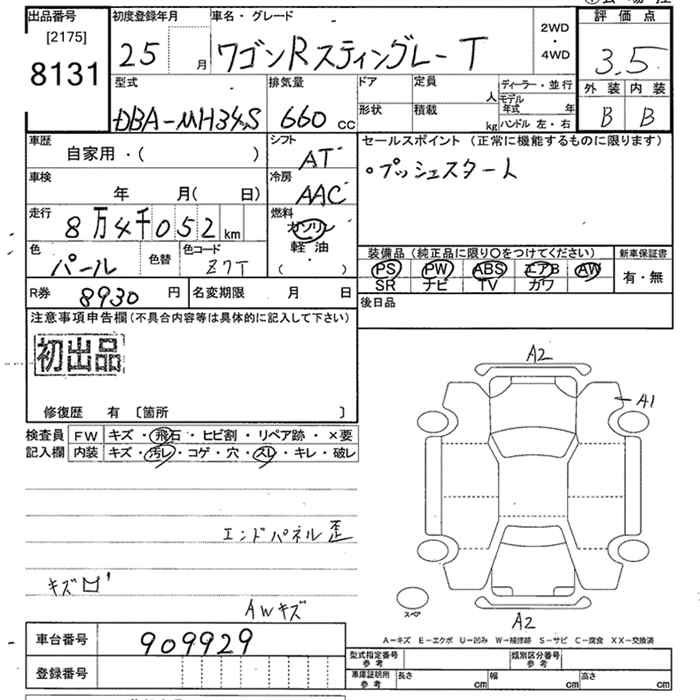 出品番号 初度登録年月 車名・グレード 評価点
[2175]
8131 25 月 ワゴンRスティングレーT 2WD・4WD 3.5
外装 内装
B B
型式 排気量 ドア 定員 人 ディーラー・並行
DBA-MH34S 660 cc 形状 積載 kg モデル年式 年 ハンドル 左・右
車歴 シフト セールスポイント(正常に機能するものに限ります)
自家用・( ) AT ・プッシュスタート
車検 冷房
年 月( 日) AAC
走行 燃料
8万4千052km ガソリン
軽油
・
( )
色 色替 色コード
パール Z7T
装備品(純正品に限り○をつけてください) 新車保証書
PS PW ABS エアB AW 有・無
SR ナビ TV カワ
R券 8930 円 名変期限 月 日 後日品
注意事項申告欄(不具合内容等は具体的に記入して下さい)
初出品
修復歴 有 [箇所 ]
検査員 FW キズ・飛石・ヒビ割・リペア跡・×要
記入欄 内装 キズ・汚レ・コゲ・穴・スレ・キレ・破レ
A2
A1
エンドパネル歪
キズ
AWキズ
スペア
A2
A-キズ E-エクボ U-凹み W-補修跡 S-サビ C-腐食 XX-交換済
車台番号 909929
登録番号
型式指定番号 参考 類別区分番号 参考
車庫証明用 参考 長さ cm 幅 cm 高さ cm